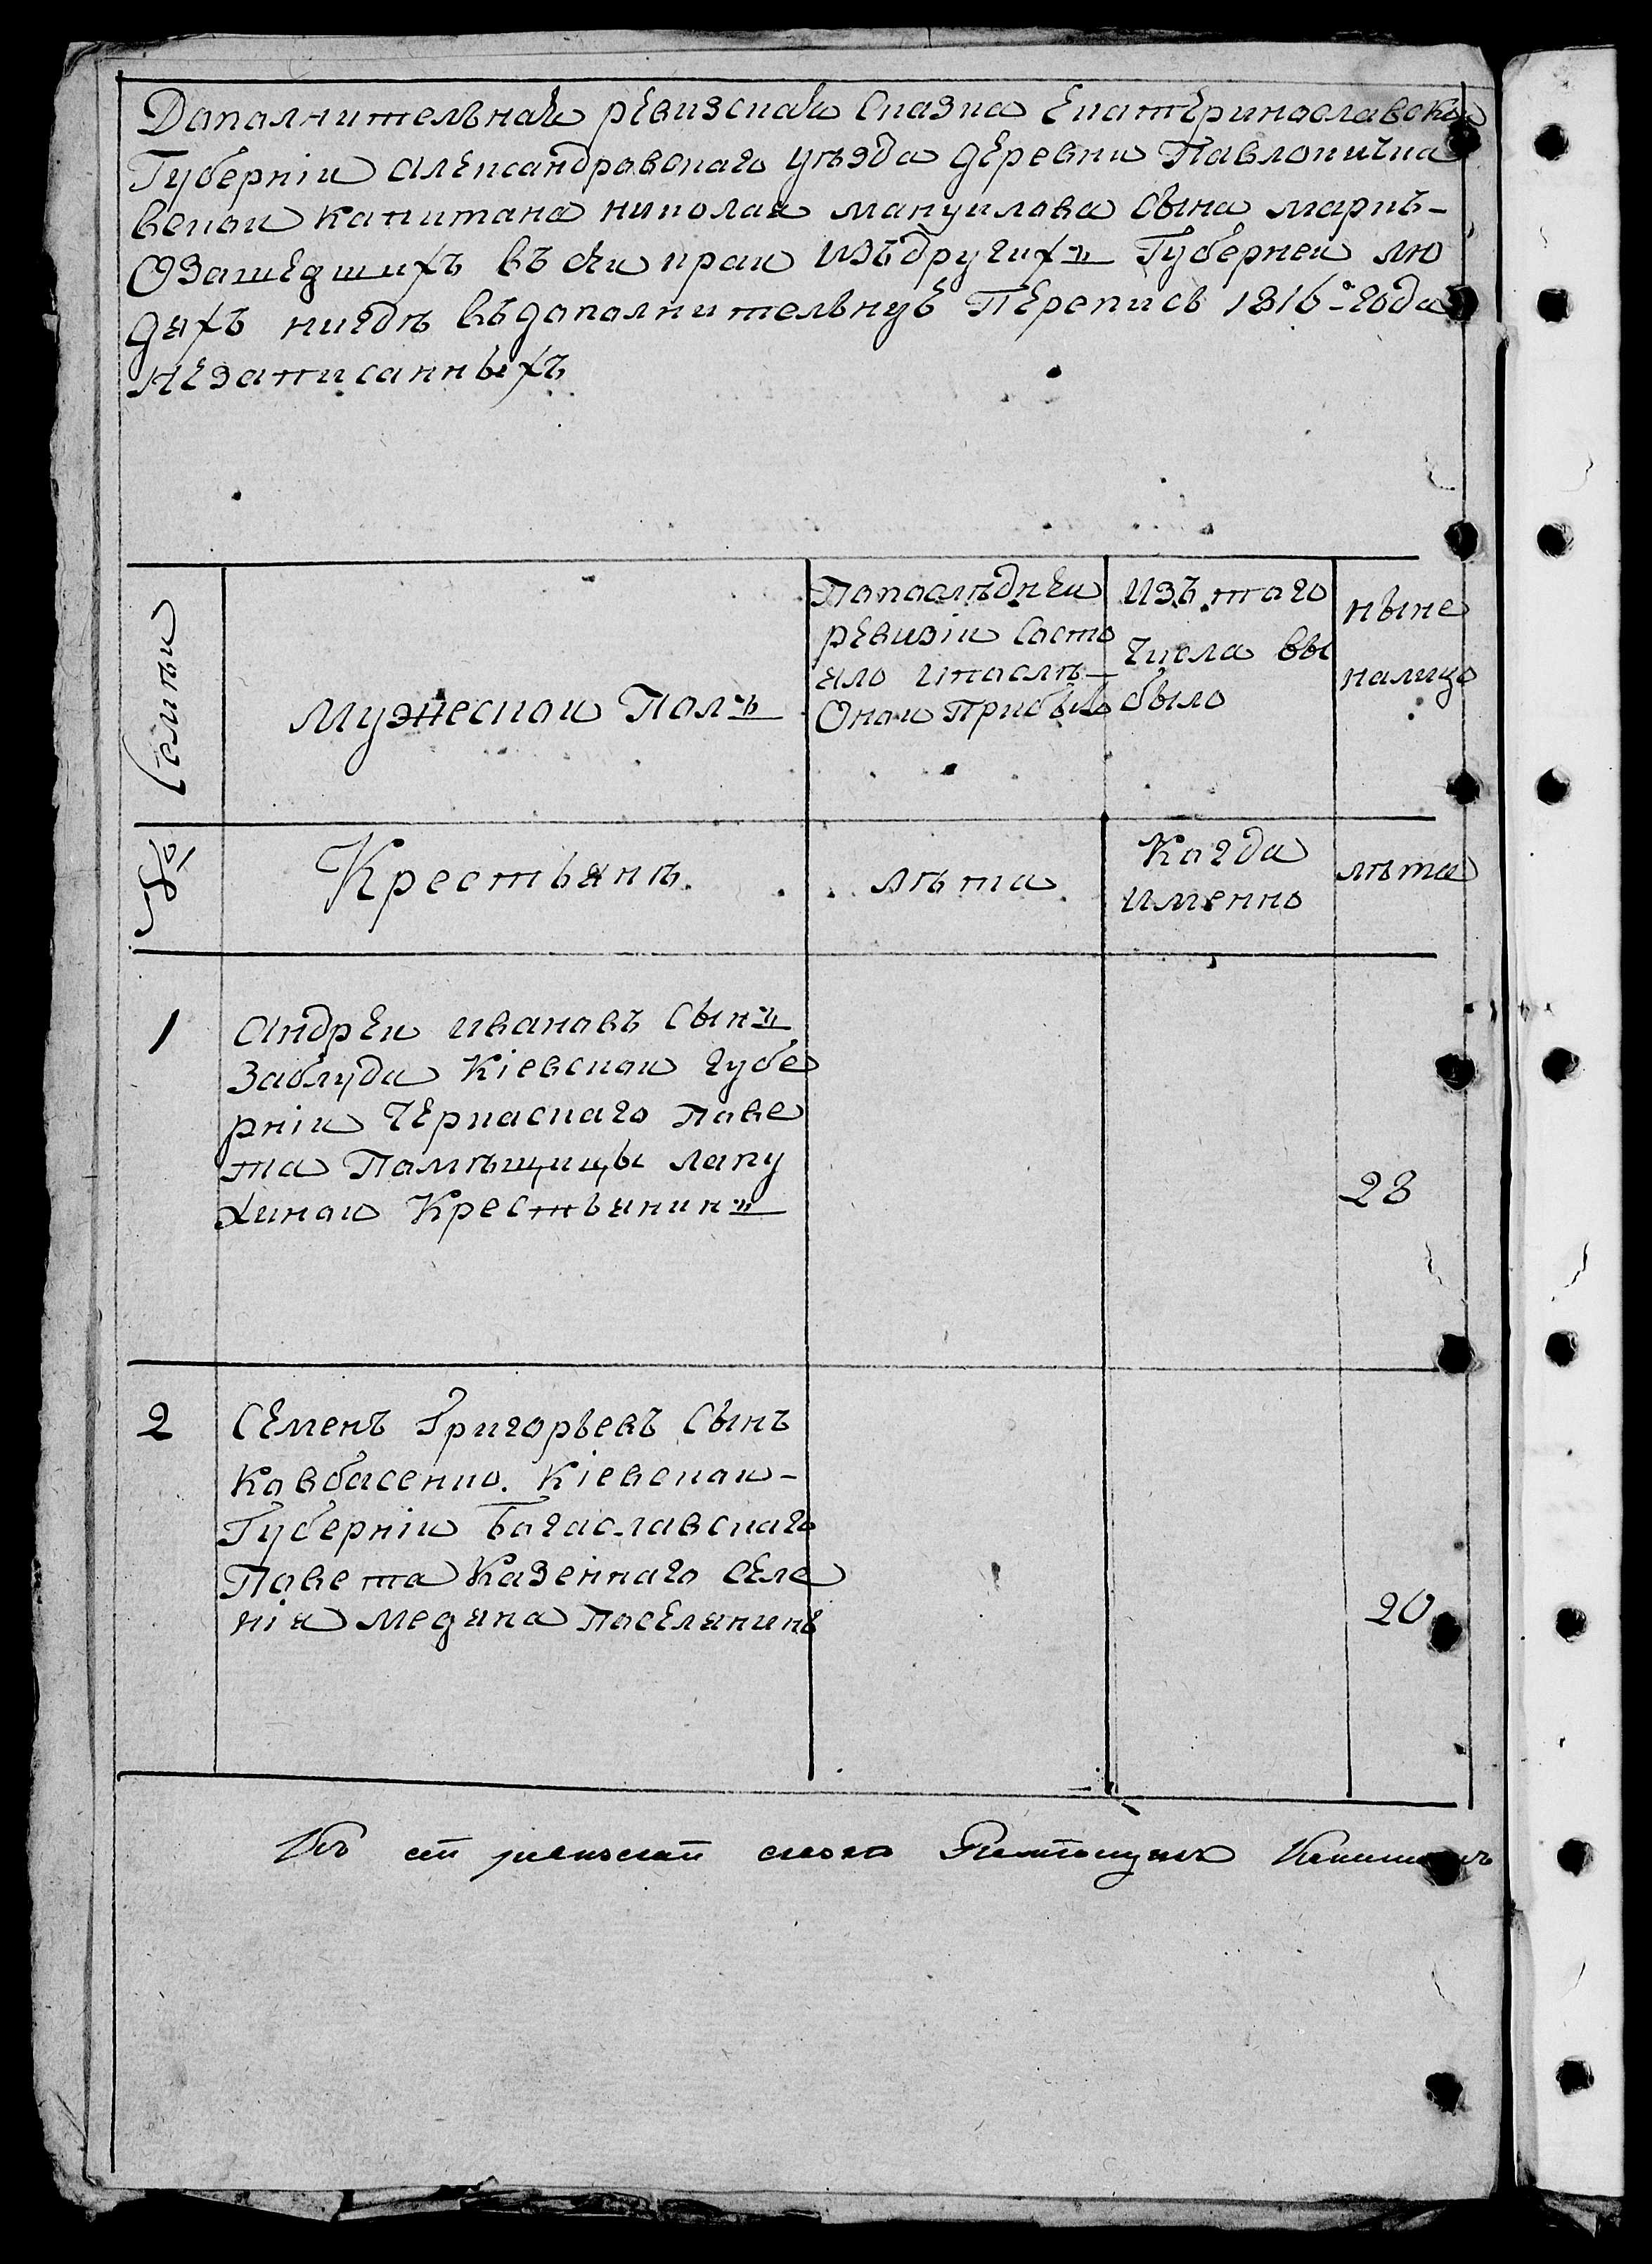 Дополнительная ревизская сказка Екатеринославской
Губерніи Александровскаго уѣзда деревни Павлокичка
веской Капитана николая мануилова сына марка-
О Зашедшихъ въ сей край изъ другихъ Губерней лю
дяхъ нигдѣ въ дополнительную Перепись 1816го года
незаписанныхъ
Семьи
№
мужеской Полъ
По последней
ревизіи состо
яло и послѣ-
Оной Прибыло
Изъ того
числа вы
было
ныне
налицо
Крестьянѣ
лѣта
Когда
именно
лѣта
1
Андрей ивановъ Сынъ
Заблуда Кіевской губе
рніи Черкаскаго пове
та Помѣщицы лопу
хиной Крестьянинъ
28
2
Семенъ Григорьевъ Сынъ
Ковбасенко. Кіевской-
Губерніи Богаславскаго
Повета Казеннаго Селе
нія медяна поселянинъ
20
Къ сей ревиской сказке